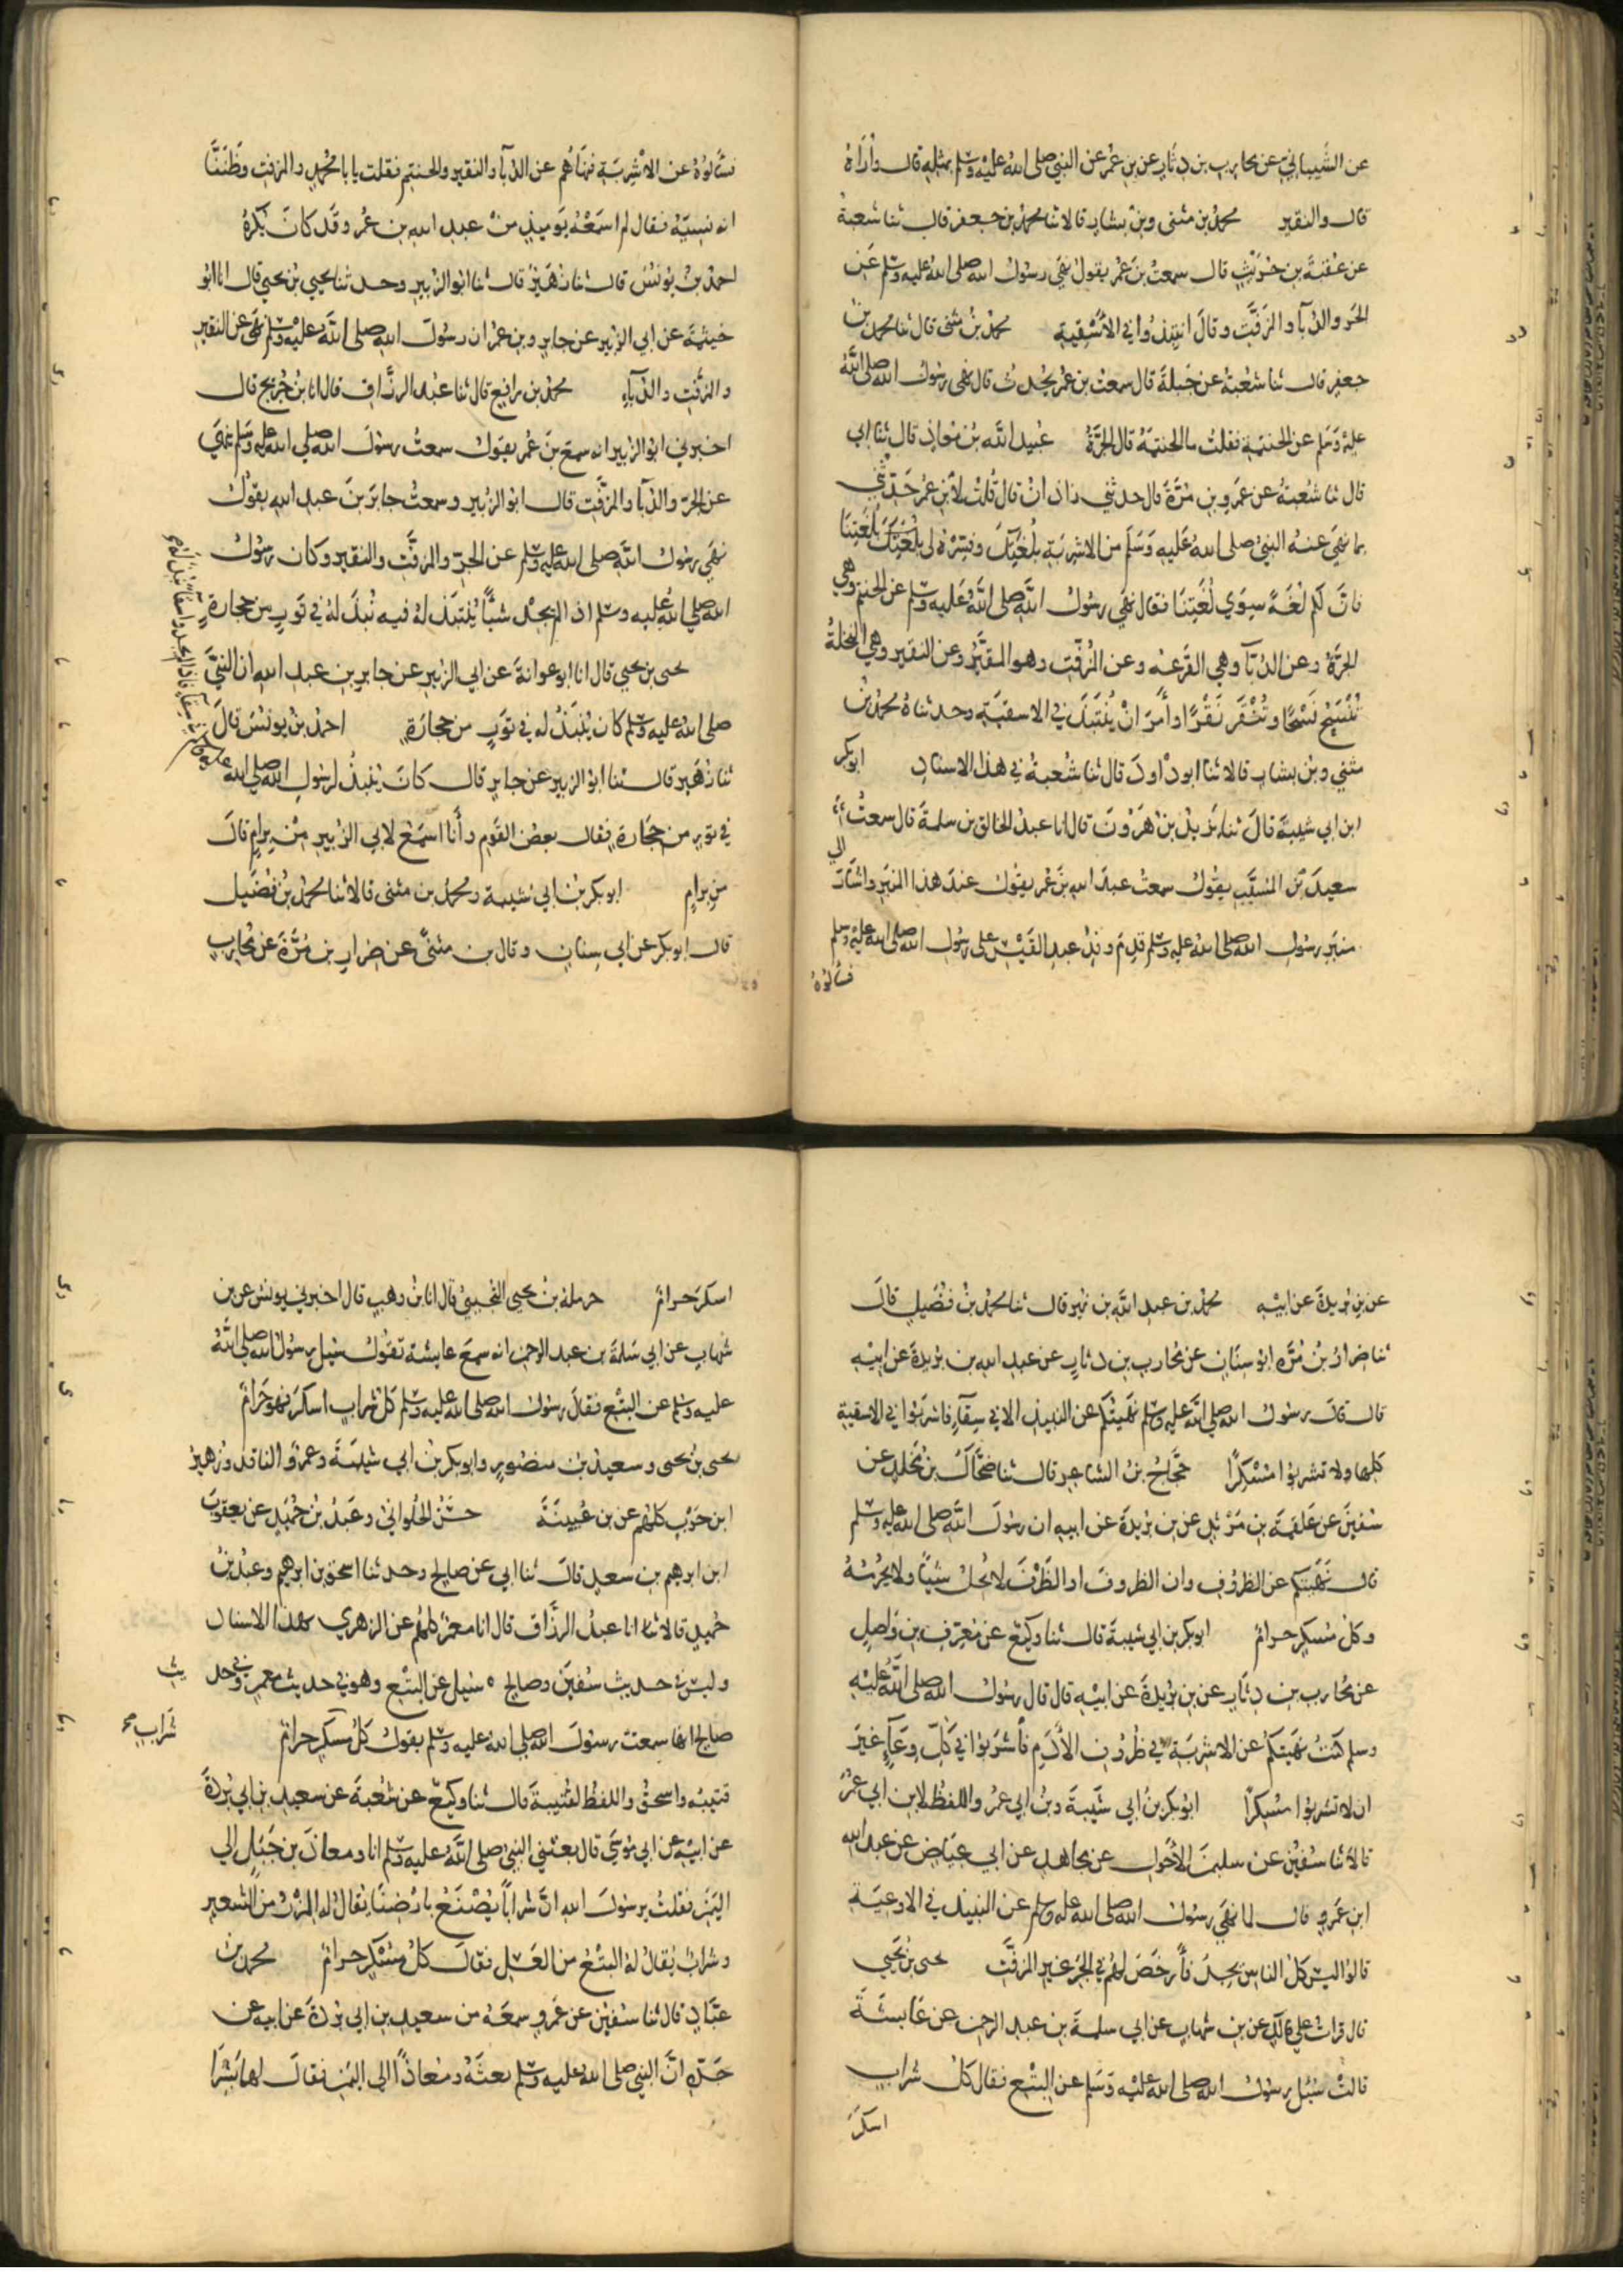 عن الشيباني عن محارب بن دثار عن بن عمر عن النبي صلى الله عليه وسلم بمثله قال وأراه
قال والنقير محمد بن مثنى وبن بشار قالا ثنا محمد بن جعفر قال ثنا شعبة
عن عقبة بن حريث قال سمعت بن عمر يقول نهى رسول الله صلى الله عليه وسلم عن
الجر والدبآ والمزفت وقال انتبذوا في الأسقية محمد بن مثنى قال ثنا محمد بن
جعفر قال ثنا شعبة عن جبلة قال سمعت بن عمر يحدث قال نهى رسول الله صلى الله
عليه وسلم عن الحنتمة فقلت ما الحنتمة قال الجرة عبيد الله بن معاذ قال ثنا ابي
قال ثنا شعبة عن عمرو بن مرة قال حدثني زاذان قال قلت لأبن عمر حدثني
بما نهى عنه النبي صلى الله عليه وسلم من الاشربة بلغتك وفسره لي بلغتنا
فان لكم لغة سوي لغتنا فقال نهى رسول الله صلى الله عليه وسلم عن الحنتم وهي
الجرة وعن الدبآ وهي القرعة وعن المزفت وهو المقير وعن النقير وهي النخلة
تنسح نسحا وتنقر نقرا وأمر ان ينتبذ في الاسقية وحدثناه محمد بن
مثني وبن بشار قالا ثنا ابو داود قال ثنا شعبة في هذا الاسناد ابو بكر
ابن ابي شيبة قال ثنا يزيد بن هرون قال انا عبد الخالق بن سلمة قال سمعت
سعيد بن المسيب يقول سمعت عبد الله بن عمر يقول عند هذا المنبر واشار الي
منبر رسول الله صلى الله عليه وسلم قدم وفد عبد القيس على رسول الله صلى الله عليه وسلم
فسألوه
فسألوه عن الاشربة فنهاهم عن الدبآ والنقير والحنتم فقلت يا با محمد والمزفت وظننا
انه نسيه فقال لم اسمعه يوميذ من عبد الله بن عمر وقد كان يكره
احمد بن يونس قال ثنا زهير قال ثنا ابو الزبير وحدثنا يحيي بن يحيي قال انا ابو
خيثمة عن ابي الزبير عن جابر وبن عمر ان رسول الله صلى الله عليه وسلم نهى عن النقير
والمزفت والدبآء محمد بن رافع قال ثنا عبد الرزاق قال انا بن جريج قال
اخبرني ابو الزبير انه سمع بن عمر يقول سمعت رسول الله صلي الله عليه وسلم نهي
عن الجر والدبآ والمزفت قال ابو الزبير وسمعت جابر بن عبد الله يقول
نهي رسول الله صلى الله عليه وسلم عن الجر والمزفت والنقير وكان رسول
الله صلي الله عليه وسلم اذا لم يجد شيئا ينتبذ له فيه نبذ له في تور من حجارة
يحيى بن يحيي قال انا ابو عوانة عن ابي الزبير عن جابر بن عبد الله ان النبي
صلى الله عليه وسلم كان ينبذ له في تور من حجارة احمد بن يونس قال
ثنا زهير قال ثنا ابو الزبير عن جابر قال كان ينبذ لرسول الله صلي الله عليه
فاذا لم يجدوا سقآ نبذ له
في تور من حجارة فقال بعض القوم وأنا اسمع لابي الزبير من برام قال
من برام ابو بكر بن ابي شيبة ومحمد بن مثنى قالا ثنا محمد بن فضيل
قال ابو بكر عن ابي سنان وقال بن مثنى عن ضرار بن مرة عن محارب
عن بن بريدة عن ابيه محمد بن عبد الله بن نمير قال ثنا محمد بن فضيل قال
ثنا ضرار بن مرة ابو سنان عن محارب بن دثار عن عبد الله بن بريدة عن ابيه
قال قال رسول الله صلي الله عليه وسلم نهيتكم عن النبيذ الا في سقآء فاشربوا في الاسقية
كلها ولا تشربوا مسكرا حجاج بن الشاعر قال ثنا ضحاك بن مخلد عن
سفين عن علقمة بن مرثد عن بن بريدة عن ابيه ان رسول الله صلى الله عليه وسلم
قال نهيتكم عن الظروف وان الظروف او الظرف لا يحل شيئا ولا يحرمه
وكل مسكر حرام ابو بكر بن ابي شيبة قال ثنا وكيع عن معرف بن واصل
عن محارب بن دثار عن بن بريدة عن ابيه قال قال رسول الله صلى الله عليه
وسلم كنت نهيتكم عن الاشربة في ظروف الأدم فأشربوا في كل وعآء غير
ان لا تشربوا مسكرا ابو بكر بن ابي شيبة وبن ابي عمر واللفظ لابن ابي عمر
قالا ثنا سفين عن سليمن الأحول عن مجاهد عن ابي عياض عن عبد الله
ابن عمرو قال لما نهي رسول الله صلى الله عليه وسلم عن النبيذ في الاوعية
قالوا ليس كل الناس يجد فأرخص لهم في الجر غير المزفت يحيى بن يحيي
قال قرات على مالك عن بن شهاب عن ابي سلمة بن عبد الرحمن عن عايشة
قالت سئل رسول الله صلى الله عليه وسلم عن البتع فقال كل شراب
اسكر
اسكر حرام حرملة بن يحيى التجيبي قال انا بن وهب قال اخبرني يونس عن بن
شهاب عن ابي سلمة بن عبد الرحمن انه سمع عايشة تقول سئل رسول الله صلى الله
عليه وسلم عن البتع فقال رسول الله صلى الله عليه وسلم كل شراب اسكر فهو حرام
يحيى بن يحيى وسعيد بن منصور وابو بكر بن ابي شيبة وعمرو الناقد وزهير
ابن حرب كلهم عن بن عيينة حسن الحلواني وعبد بن حميد عن يعقوب
ابن ابرهيم بن سعيد قال ثنا ابي عن صالح وحدثنا اسحق بن ابرهيم وعبد بن
حميد قالا ثنا انا عبد الرزاق قال انا معمر كلهم عن الزهري بهذا الاسناد
وليس في حديث سفين وصالح ٥ سئل عن البتع وهو في حديث معمر وفي حديث
صالح انها سمعت رسول الله صلي الله عليه وسلم يقول كل مسكر حرام
شراب صح
قتيبة واسحق واللفظ لقتيبة قال ثنا وكيع عن شعبة عن سعيد بن ابي بردة
عن ابيه عن ابي موسى قال بعثني النبي صلى الله عليه وسلم انا ومعاذ بن جبل الي
اليمن فقلت يرسول الله ان شرابا يصنع بارضنا يقال له المزر من الشعير
وشراب يقال له البتع من العسل فقال كل مسكر حرام محمد بن
عباد قال ثنا سفين عن عمرو سمعه من سعيد بن ابي بردة عن ابيه عن
جده ان النبي صلى الله عليه وسلم بعثه ومعاذا الى اليمن فقال لهما بشرا